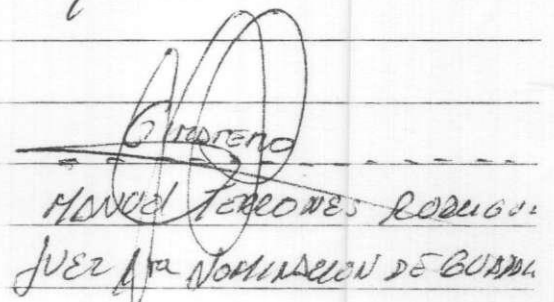 MANUEL TERRONES RODRIGU
JUEZ 1ra NOMINACION DE GUADAL